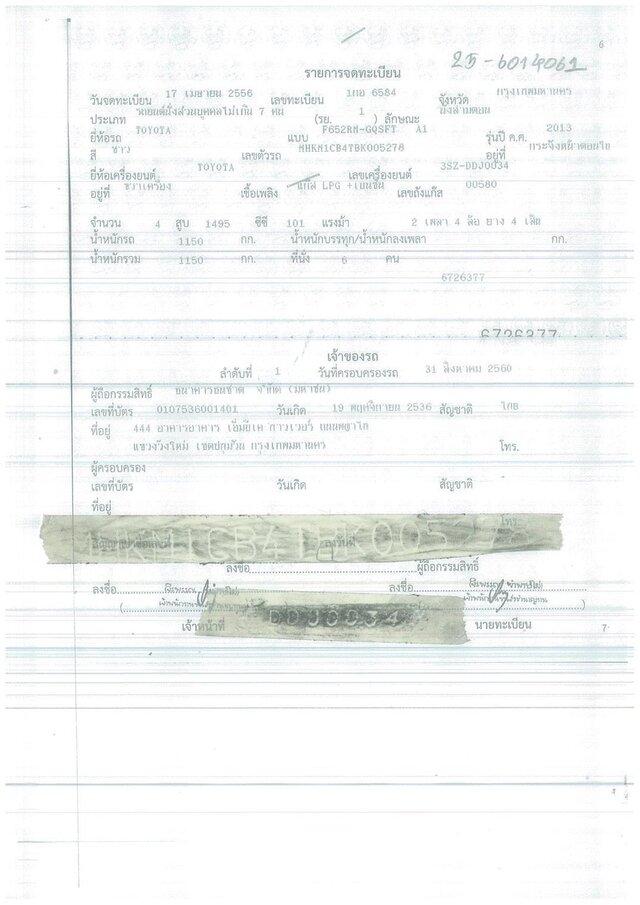 6
25-6014061
รายการจดทะเบียน
วันจดทะเบียน 17 เมษายน 2556 เลขทะเบียน 1กอ 6584 จังหวัด กรุงเทพมหานคร
ประเภท รถยนต์นั่งส่วนบุคคลไม่เกิน 7 คน (รย. 1 ) ลักษณะ นั่งสามตอน
ยี่ห้อรถ TOYOTA แบบ F652RM-GQSFT A1 รุ่นปี ค.ศ. 2013
สี ขาว เลขตัวรถ MHKM1CB4TBK005278 อยู่ที่
ยี่ห้อเครื่องยนต์ TOYOTA เลขเครื่องยนต์ 3SZ-DDJ0034
อยู่ที่ ขวาเครื่อง เชื้อเพลิง แก๊ส LPG +เบนซิน เลขถังแก๊ส 00580
จำนวน 4 สูบ 1495 ซีซี 101 แรงม้า 2 เพลา 4 ล้อ ยาง 4 เส้น
น้ำหนักรถ 1150 กก. น้ำหนักบรรทุก/น้ำหนักลงเพลา กก.
น้ำหนักรวม 1150 กก. ที่นั่ง 6 คน
6726377
6726377
เจ้าของรถ
ลำดับที่ 1 วันที่ครอบครองรถ 31 สิงหาคม 2560
ผู้ถือกรรมสิทธิ์ ธนาคารธนชาต จำกัด (มหาชน)
เลขที่บัตร 0107536001401 วันเกิด 19 พฤศจิกายน 2536 สัญชาติ ไทย
ที่อยู่ 444 อาคารอาคาร เอ็มบีเค ทาวเวอร์ ถนนพญาไท
แขวงวังใหม่ เขตปทุมวัน กรุงเทพมหานคร โทร.
ผู้ครอบครอง
เลขที่บัตร วันเกิด สัญชาติ
ที่อยู่
โทร.
สัญญาเช่าซื้อเลขที่ ลงวันที่
ลงชื่อ ผู้ถือกรรมสิทธิ์
ลงชื่อ ลงชื่อ
DDJ0034
เจ้าหน้าที่ นายทะเบียน
7